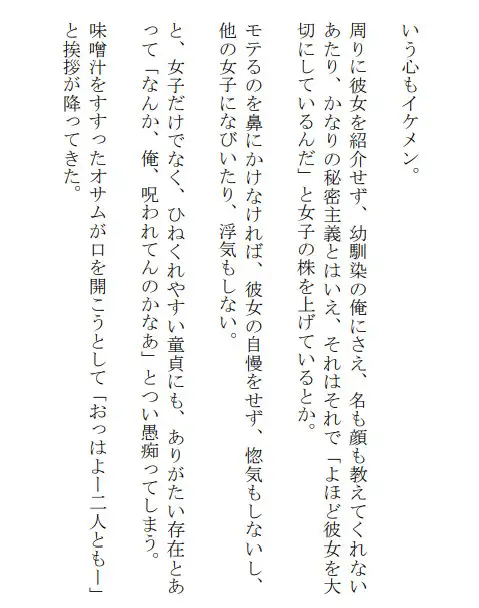 いう心もイケメン。
周りに彼女を紹介せず、幼馴染の俺にさえ、名も顔も教えてくれない
あたり、かなりの秘密主義とはいえ、それはそれで「よほど彼女を大
切にしているんだ」と女子の株を上げているとか。
モテるのを鼻にかけなければ、彼女の自慢をせず、惚気もしないし、
他の女子になびいたり、浮気もしない。
と、女子だけでなく、ひねくれやすい童貞にも、ありがたい存在とあ
って「なんか、俺、呪われてんのかなあ」とつい愚痴ってしまう。
味噌汁をすすったオサムが口を開こうとして「おっはよー二人ともー」
と挨拶が降ってきた。